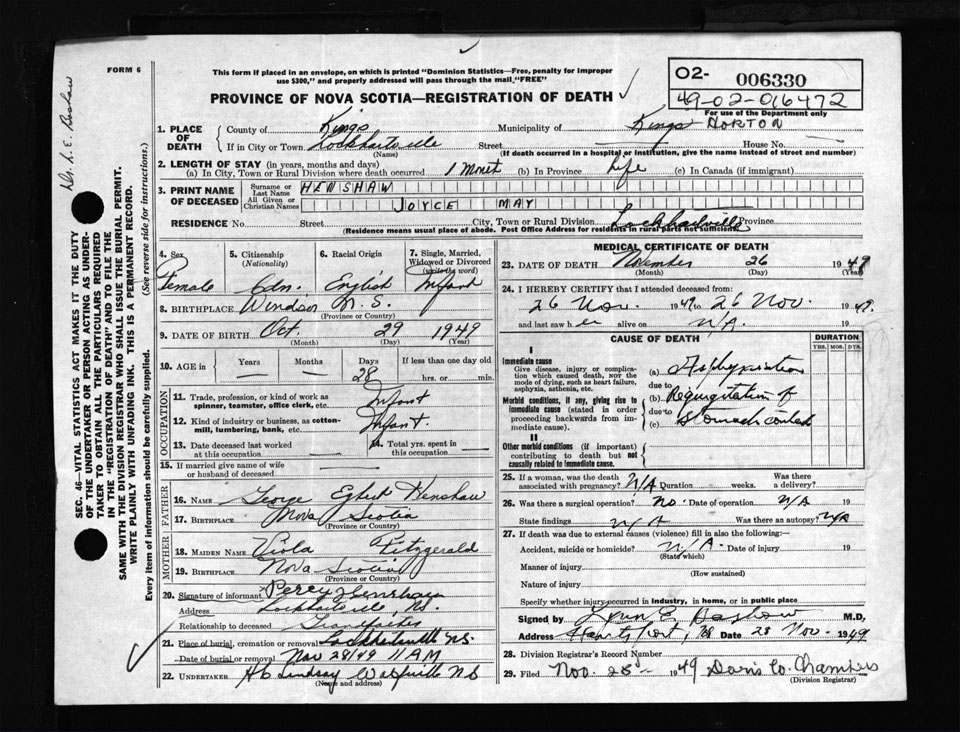 FORM 6
This form if placed in an envelope, on which is printed "Dominion Statistics—Free, penalty for improper
use $300," and properly addressed will pass through the mail, "FREE"
PROVINCE OF NOVA SCOTIA—REGISTRATION OF DEATH
O2- 006330
49-02-016472
For use of the Department only
1. PLACE OF DEATH
County of Kings Municipality of Kings HORTON
If in City or Town Lockhartville Street House No.
(Name) (If death occurred in a hospital or institution, give the name instead of street and number)
2. LENGTH OF STAY (in years, months and days)
(a) In City, Town or Rural Division where death occurred 1 Month (b) In Province Life (c) In Canada (if immigrant)
3. PRINT NAME OF DECEASED
Surname or Last Name HENSHAW
All Given or Christian Names JOYCE MAY
RESIDENCE No. Street City, Town or Rural Division Lockhartville Province
(Residence means usual place of abode. Post Office Address for residents in rural parts not sufficient.)
4. Sex Female
5. Citizenship (Nationality) Cdn.
6. Racial Origin English
7. Single, Married, Widowed or Divorced (write the word) Infant
8. BIRTHPLACE Windsor N.S.
(Province or Country)
9. DATE OF BIRTH Oct. 29 1949
(Month) (Day) (Year)
10. AGE in Years Months Days 28 If less than one day old
hrs. or min.
OCCUPATION
11. Trade, profession, or kind of work as spinner, teamster, office clerk, etc. Infant
12. Kind of industry or business, as cotton-mill, lumbering, bank, etc. Infant.
13. Date deceased last worked at this occupation
14. Total yrs. spent in this occupation
15. If married give name of wife or husband of deceased
FATHER
16. NAME George Egbert Henshaw
17. BIRTHPLACE Nova Scotia
(Province or Country)
MOTHER
18. MAIDEN NAME Viola Fitzgerald
19. BIRTHPLACE Nova Scotia
(Province or Country)
20. Signature of informant Percy Henshaw
Address Lockhartville, N.S.
Relationship to deceased Grandfather
21. Place of burial, cremation or removal Lockhartville N.S.
Date of burial or removal Nov 28/49 11 AM
22. UNDERTAKER Lindsay Wolfville N.S
(Name and address)
MEDICAL CERTIFICATE OF DEATH
23. DATE OF DEATH November 26 1949
(Month) (Day) (Year)
24. I HEREBY CERTIFY that I attended deceased from:
26 Nov. 1949 to 26 Nov. 1949.
and last saw her alive on N/A 19
CAUSE OF DEATH
DURATION
YRS. MOS. DYS.
I
Immediate cause
Give disease, injury or complication which caused death, not the mode of dying, such as heart failure, asphyxia, asthenia, etc.
(a) Asphyxiation
due to
Morbid conditions, if any, giving rise to immediate cause (stated in order proceeding backwards from immediate cause).
(b) Regurgitation of
due to
(c) stomach content
II
Other morbid conditions (if important) contributing to death but not causally related to immediate cause.
25. If a woman, was the death associated with pregnancy? N/A Duration weeks. Was there a delivery?
26. Was there a surgical operation? no. Date of operation N/A
State findings N/A Was there an autopsy? N/A
27. If death was due to external causes (violence) fill in also the following:—
Accident, suicide or homicide? N/A. Date of injury 19
(State which)
Manner of injury
(How sustained)
Nature of injury
Specify whether injury occurred in industry, in home, or in public place
Signed by M.D.
Address Hantsport, NS Date 28 Nov. 1949
28. Division Registrar's Record Number
29. Filed Nov. 28 1949 Doris Chambers
(Division Registrar)
SEC. 46—VITAL STATISTICS ACT MAKES IT THE DUTY
OF THE UNDERTAKER OR PERSON ACTING AS UNDER-
TAKER TO OBTAIN ALL THE PARTICULARS REQUIRED
IN THE "REGISTRATION OF DEATH" AND TO FILE THE
SAME WITH THE DIVISION REGISTRAR WHO SHALL ISSUE THE BURIAL PERMIT.
WRITE PLAINLY WITH UNFADING INK. THIS IS A PERMANENT RECORD.
Every item of information should be carefully supplied. (See reverse side for instructions.)